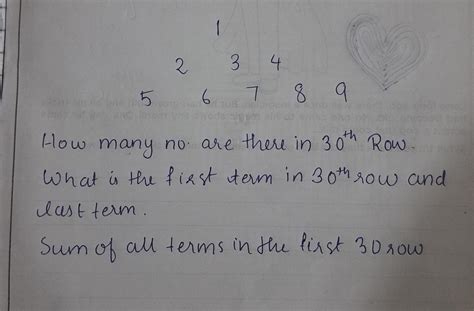 1
2 3 4
5 6 7 8 9
How many no. are there in 30th Row.
What is the first term in 30th row and
last term.
Sum of all terms in the first 30 row